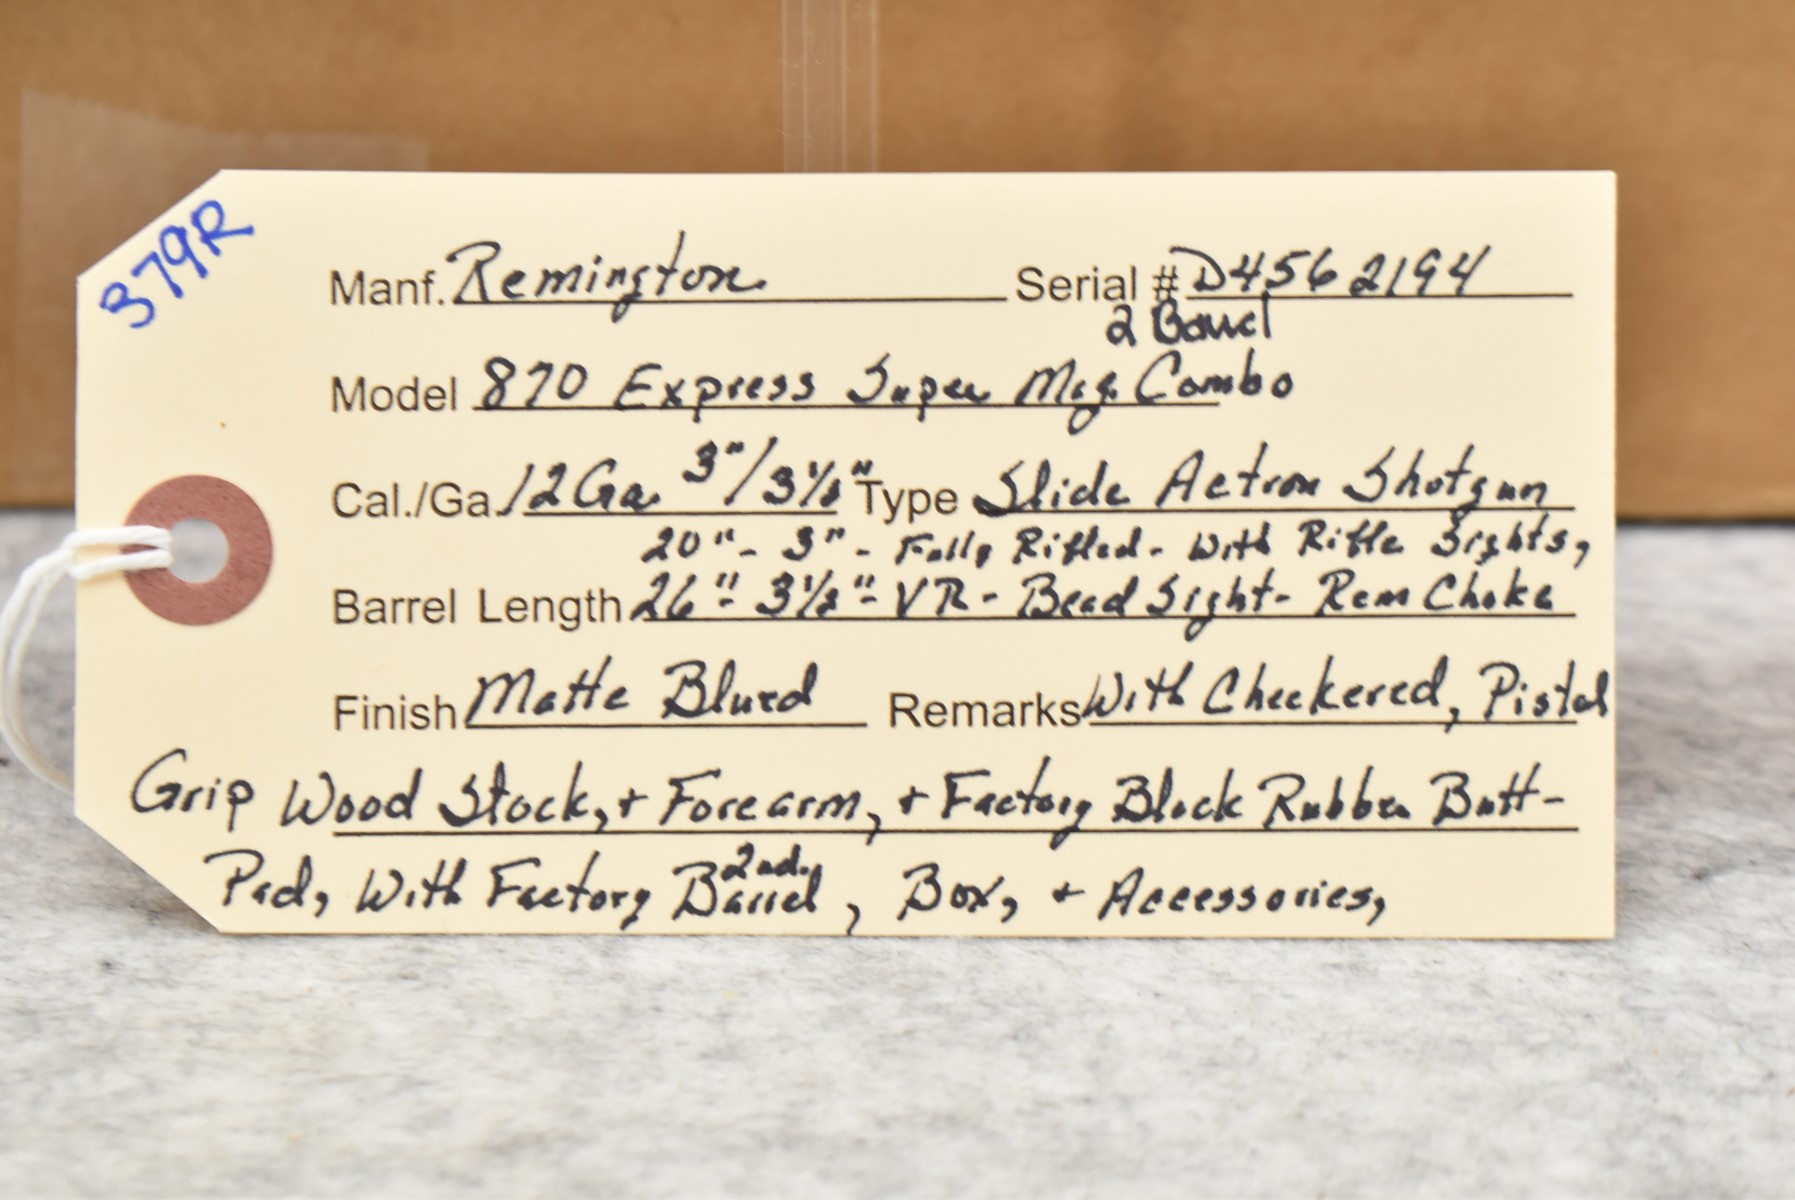 379R
Manf. Remington Serial # D4562194
2 Barrel
Model 870 Express Super Mag. Combo
Cal./Ga. 12 Ga. 3"/3½" Type Slide Action Shotgun
20" - 3" - Fully Rifled - With Rifle Sights,
Barrel Length 26" - 3½" - VR - Bead Sight - Rem Choke
Finish Matte Blued Remarks With Checkered, Pistol
Grip Wood Stock, + Forearm, + Factory Black Rubber Butt-
2nd.
Pad, With Factory Barrel, Box, + Accessories,